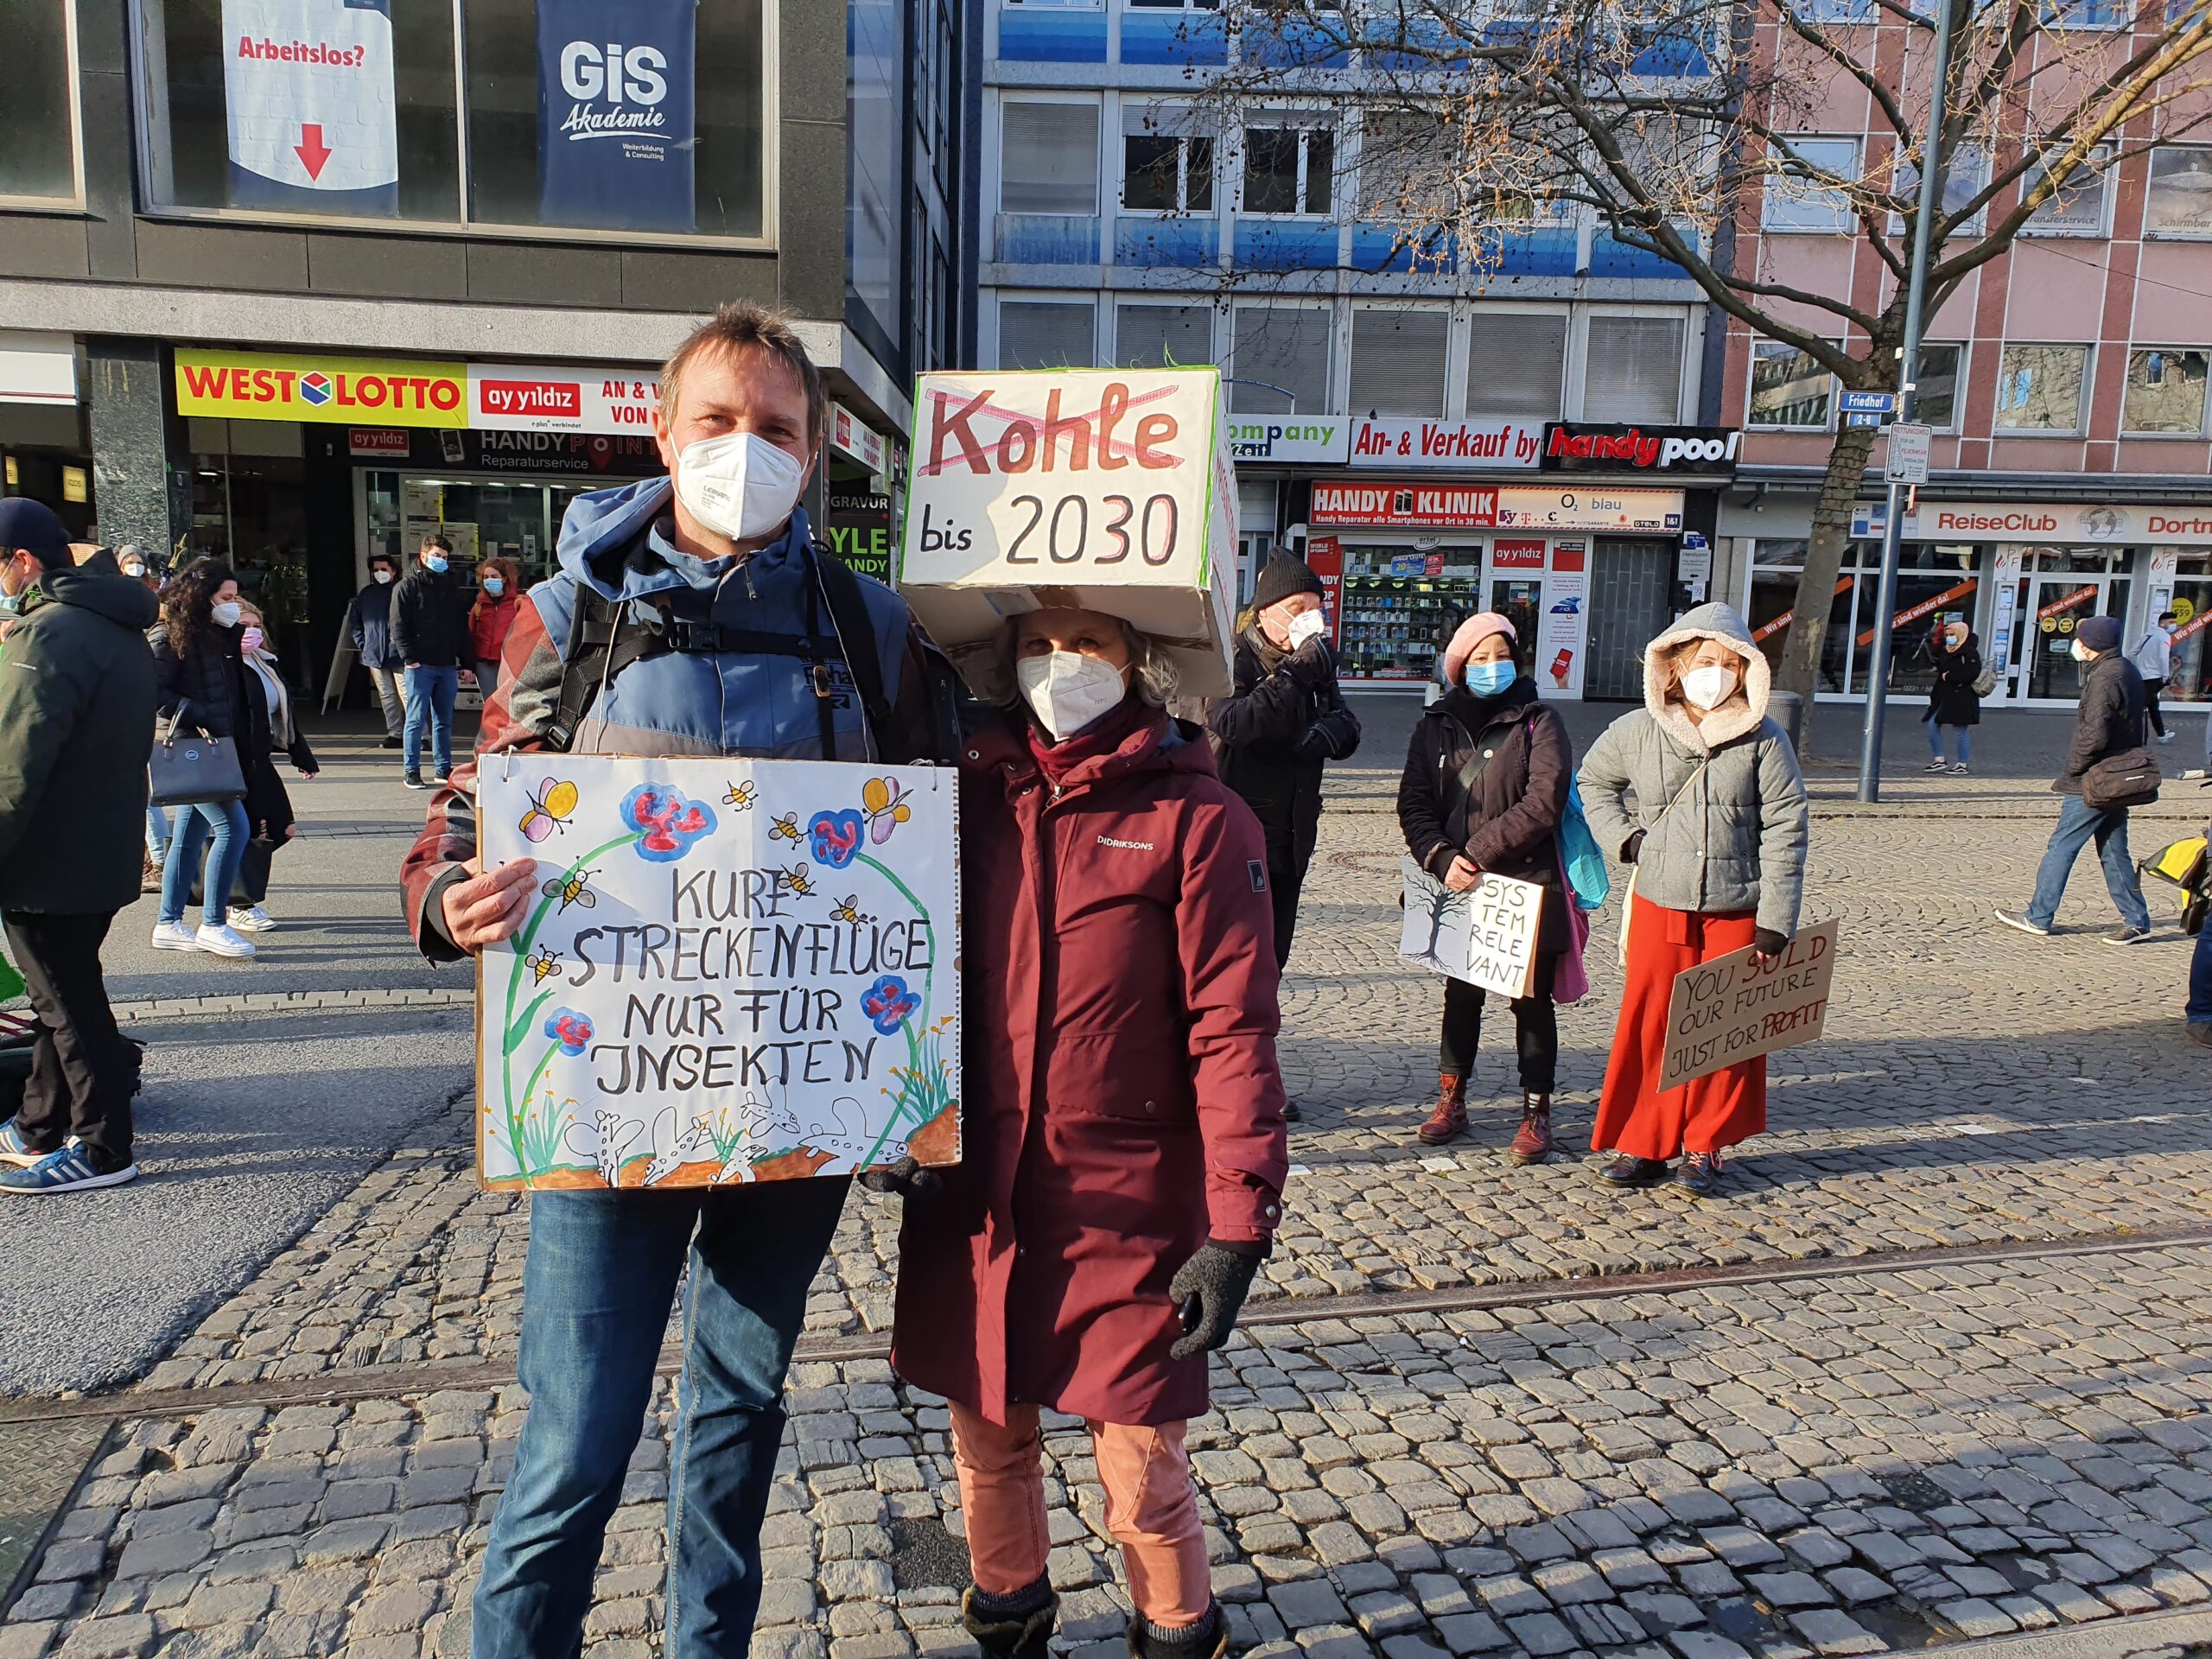 Arbeitslos?
GiS
Akademie
Weiterbildung
& Consulting
WEST LOTTO
ay yıldız
e plus verbindet
AN &
VON
ay yıldız
HANDY POINT
Reparaturservice
GRAVUR
YLE
ANDY
Kohle
bis 2030
ompany
Zeit
An- & Verkauf by
handy pool
HANDY KLINIK
Handy Reparatur alle Smartphones vor Ort in 30 min.
O2 blau
OTELO 1&1
HANDY
ay yıldız
Friedhof
2-8
RETTUNGSWEG
ReiseClub
Dortm
Wir sind wieder da!
Schirmbar
DIDRIKSONS
KURZ-
STRECKENFLÜGE
NUR FÜR
INSEKTEN
SYS
TEM
RELE
VANT
YOU SOLD
OUR FUTURE
JUST FOR PROFIT